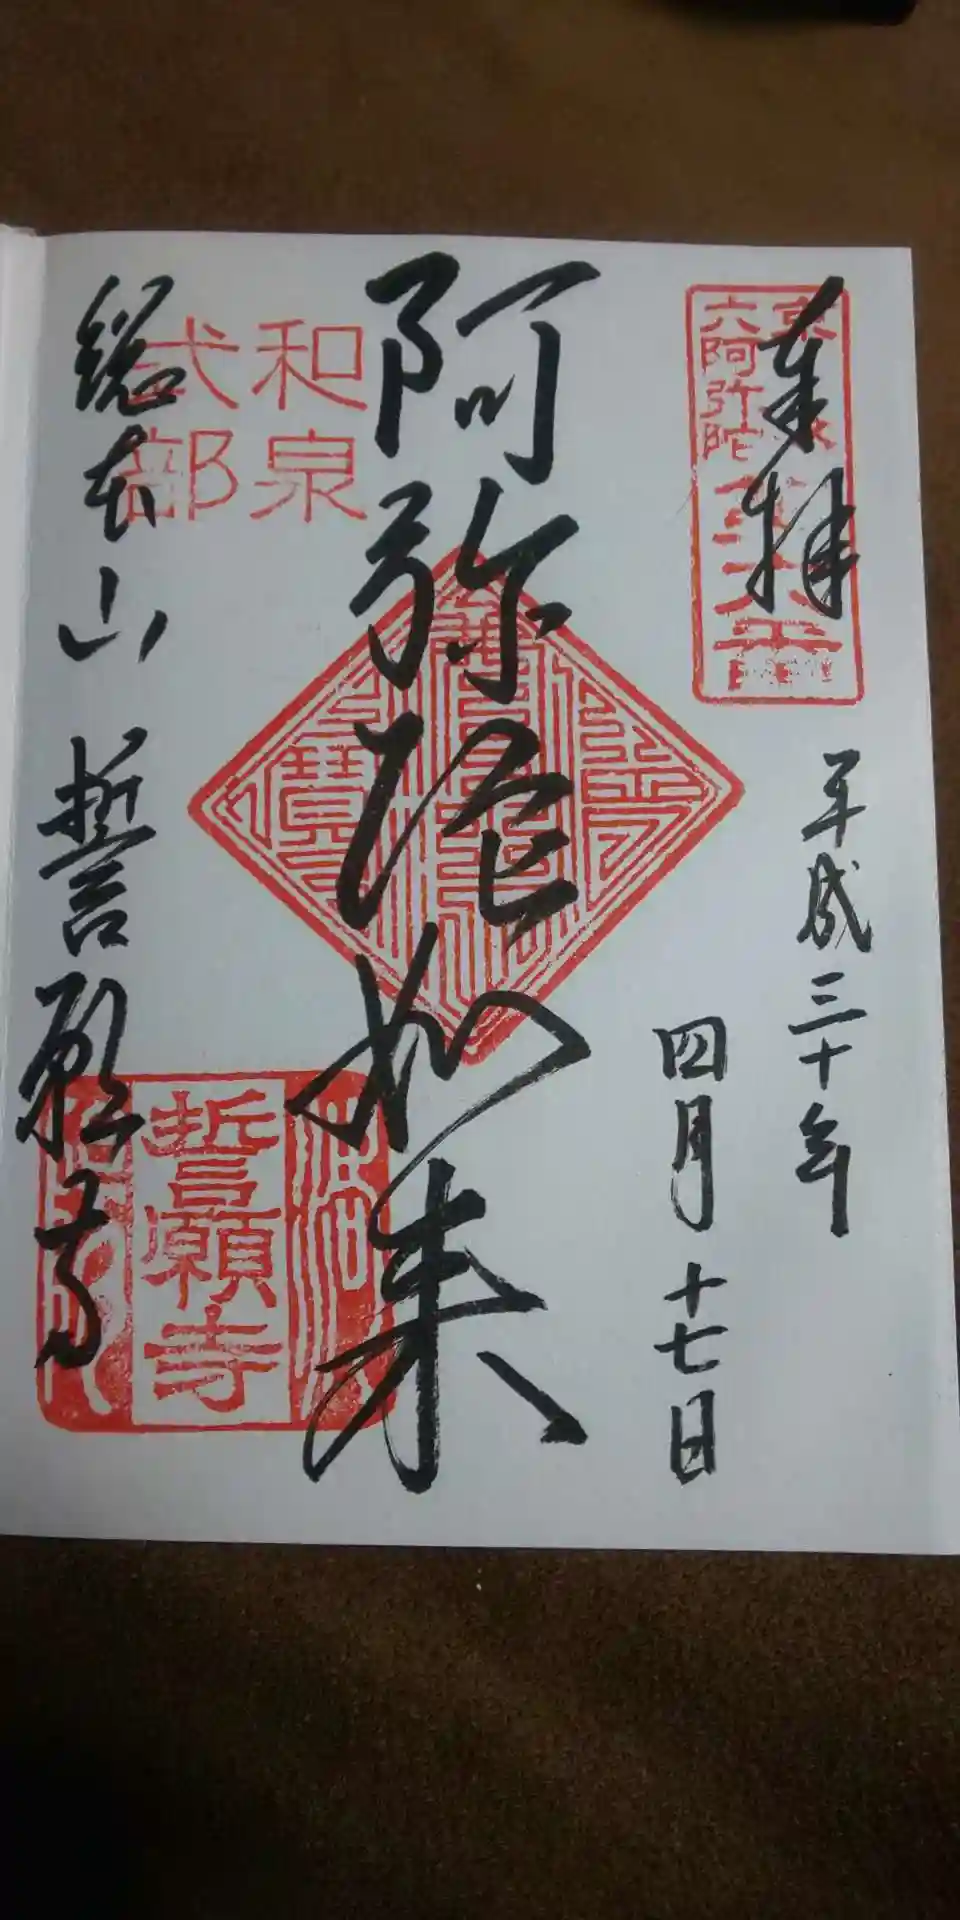 奉拝
京洛
六阿弥陀
平成三十年
四月十七日
阿弥陀如来
和泉
式部
総本山 誓願寺
誓願寺